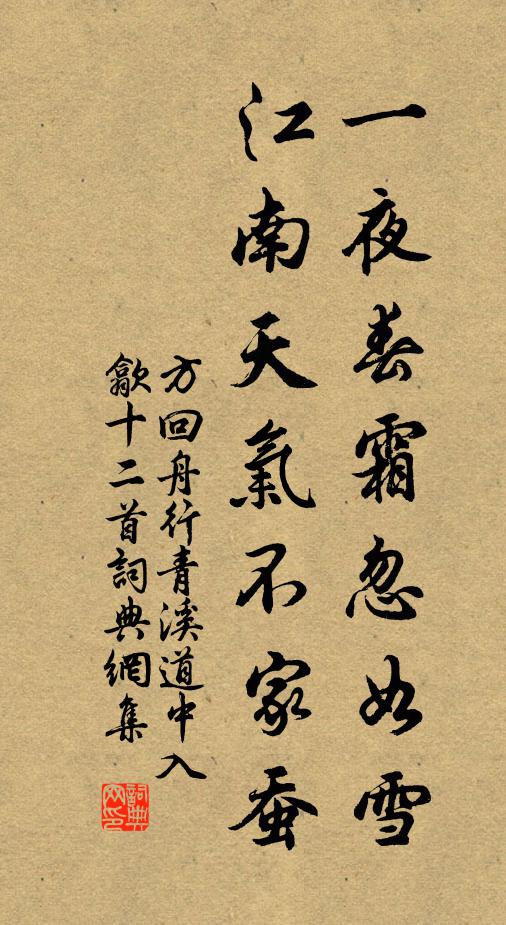 一夜春霜忽如雪
江南天氣不家蚕
方回舟行青溪道中入
歙十二首詞典網集
詞典
网印